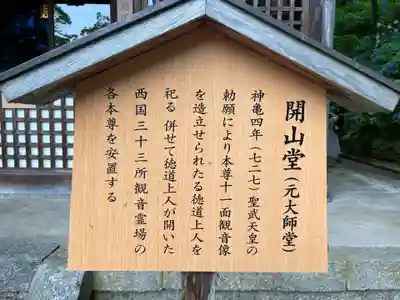 開山堂（元大師堂）
神亀四年（七二七）聖武天皇の
勅願により本尊十一面観音像
を造立せられたる徳道上人を
祀る 併せて徳道上人が開いた
西国三十三所観音霊場の
各本尊を安置する